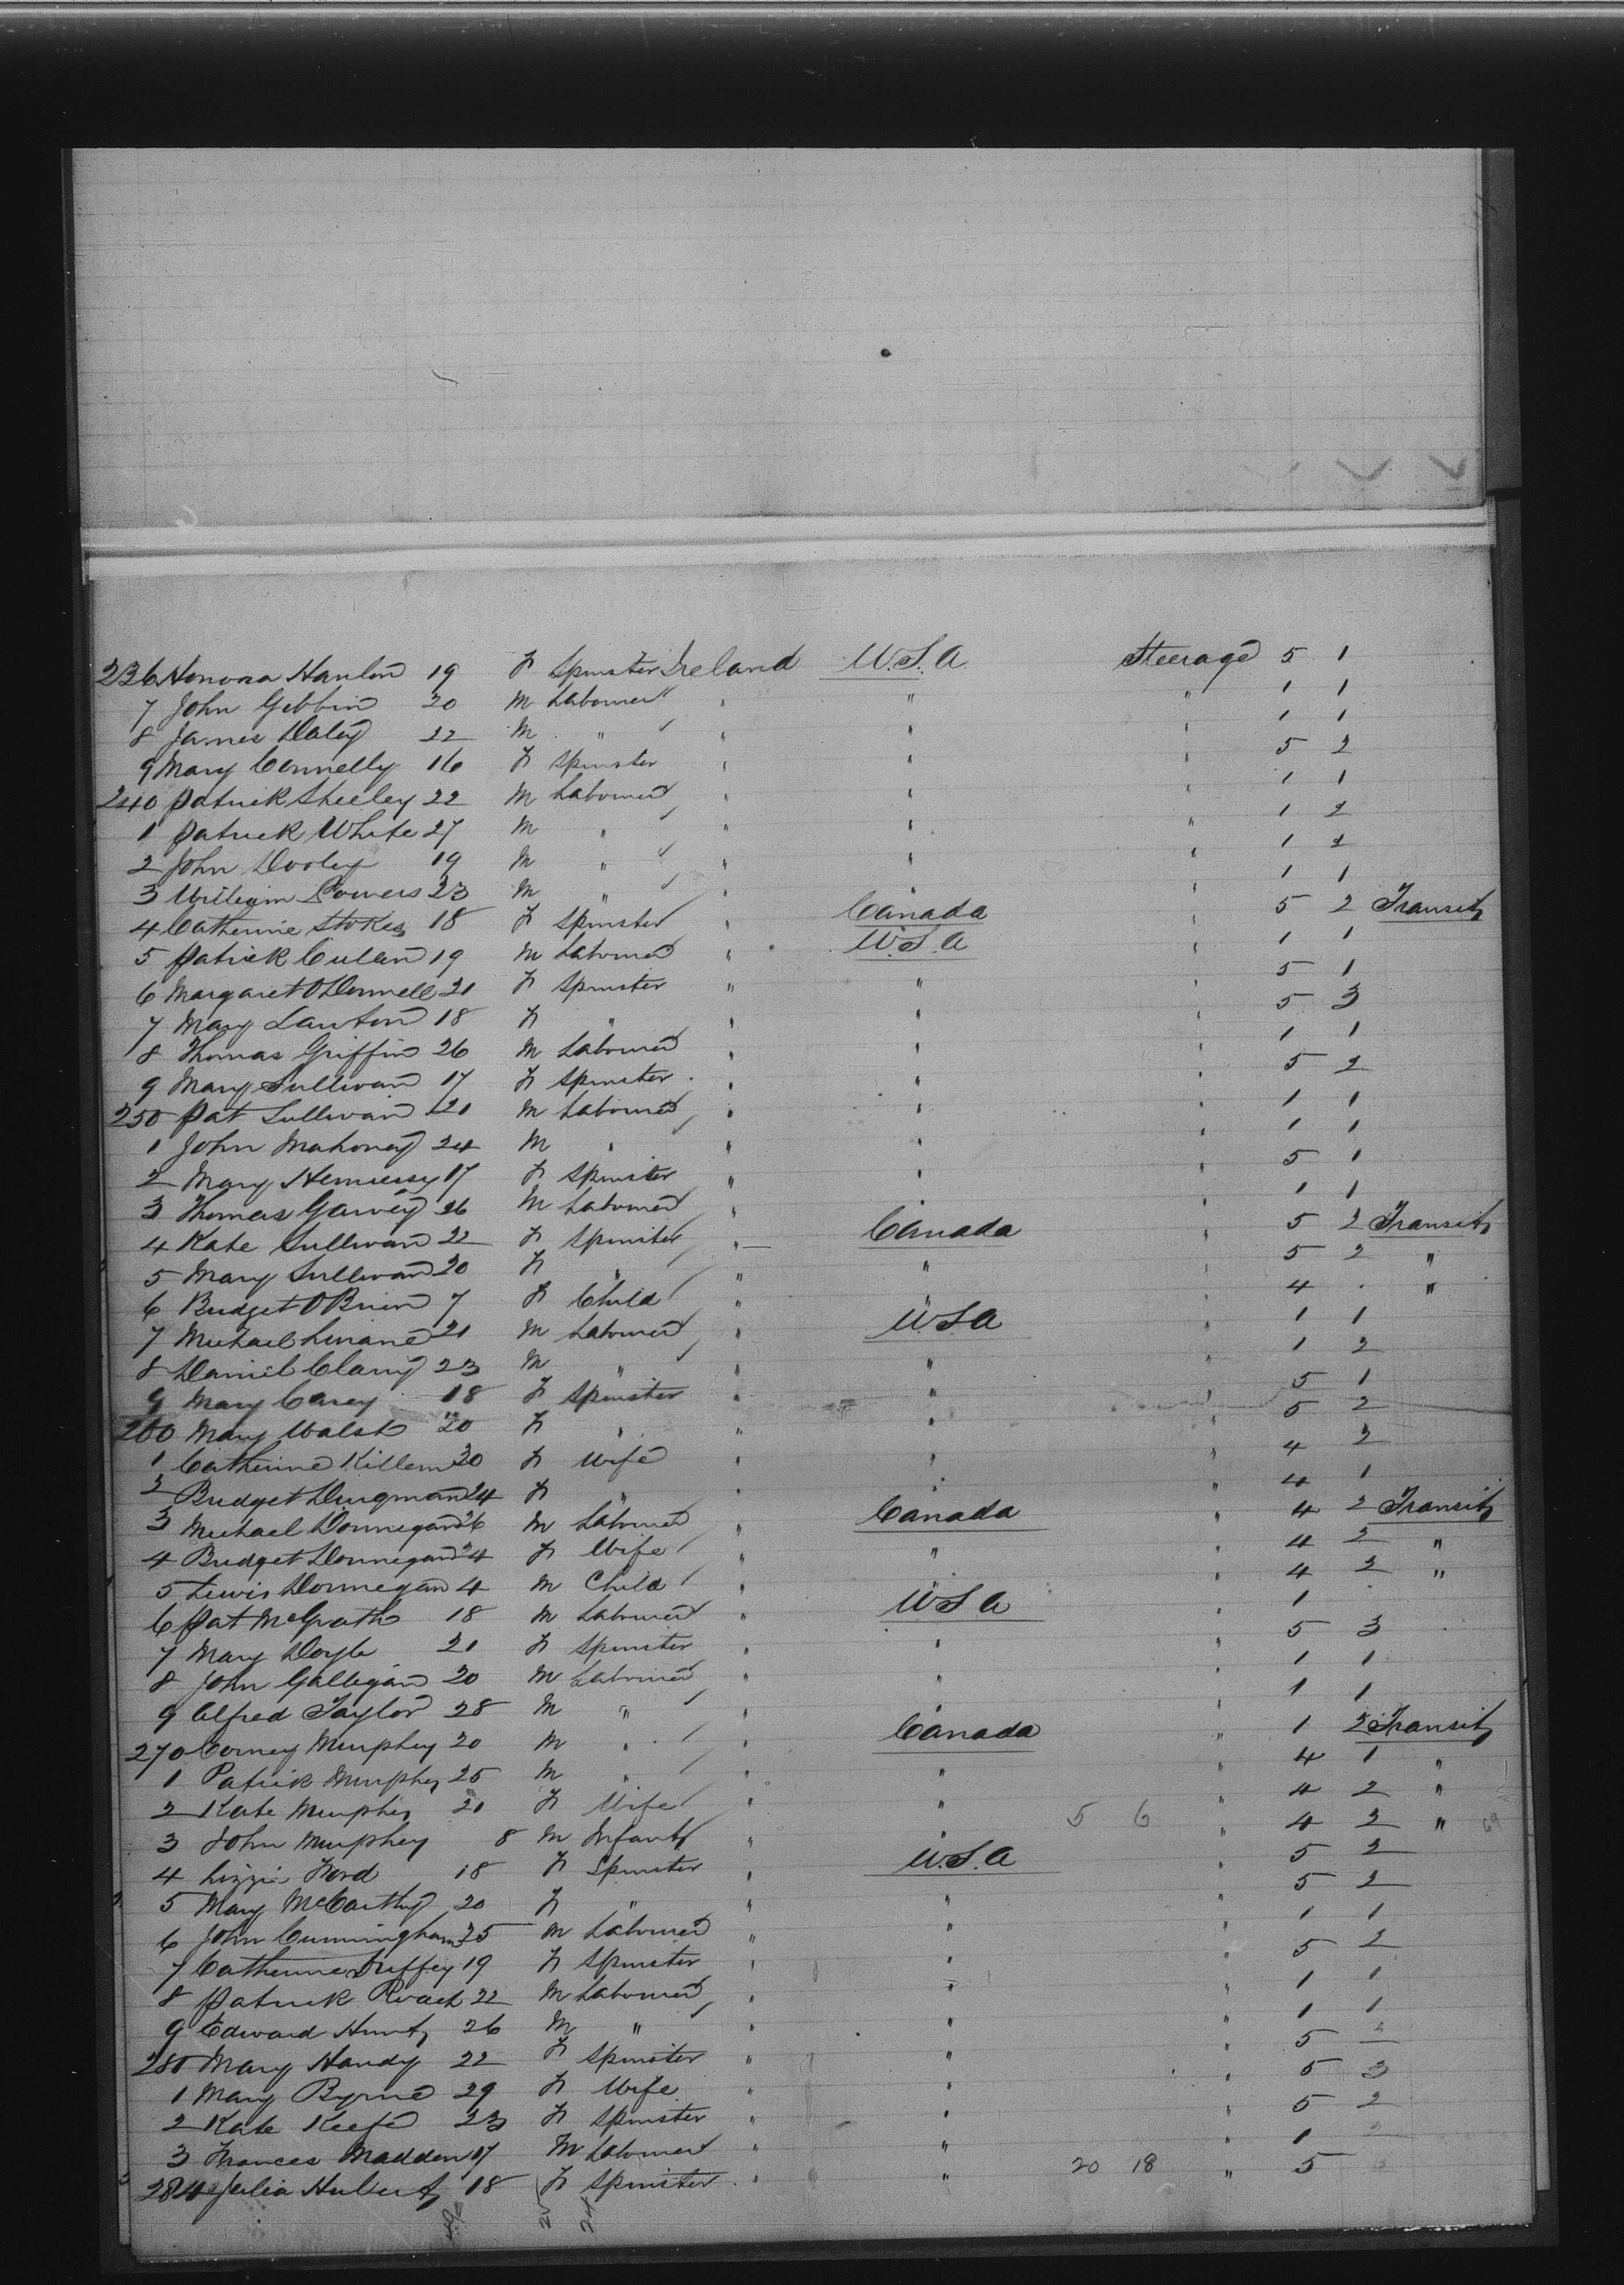 236 Honora Hanlon 19 F Spinster Ireland U.S.A. Steerage 5 1
7 John Gibbin 20 M Labourer " " " 1 1
8 James Daley 22 M " " " " 1 1
9 Mary Connelly 16 F Spinster " " " 5 2
240 Patrick Sheeley 22 M Labourer " " " 1 1
1 Patrick White 27 M " " " " 1 2
2 John Dooley 19 M " " " " 1 2
3 William Powers 23 M " " " " 1 1
4 Catherine Stokes 18 F Spinster " Canada " 5 2 Transit
5 Patrick Culen 19 M Labourer " U.S.A " 1 1
6 Margaret O'Donnell 21 F Spinster " " " 5 1
7 Mary Lawton 18 F " " " " 5 3
8 Thomas Griffin 26 M Labourer " " " 1 1
9 Mary Sullivan 17 F Spinster " " " 5 2
250 Pat Sullivan 21 M Labourer " " " 1 1
1 John Mahoney 24 M " " " " 1 1
2 Mary Hennessy 17 F Spinster " " " 5 1
3 Thomas Garvey 26 M Labourer " " " 1 1
4 Kate Sullivan 22 F Spinster " Canada " 5 2 Transit
5 Mary Sullivan 20 F " " " " 5 2 "
6 Bridget O'Brien 7 F Child " " " 4 "
7 Michael Linane 21 M Labourer " U.S.A " 1 1
8 Daniel Clany 23 M " " " " 1 2
9 Mary Carey 18 F Spinster " " " 5 1
260 Mary Walsh 20 F " " " " 5 2
1 Catherine Killem 30 F Wife " " " 4 2
2 Bridget Dingman 24 F " " " " 4 1
3 Michael Donnegan 26 M Labourer " Canada " 4 2 Transit
4 Bridget Donnegan 24 F Wife " " " 4 2 "
5 Lewis Donnegan 4 M Child " " " 4 2 "
6 Pat McGrath 18 M Labourer " U.S.A " 1
7 Mary Doyle 21 F Spinster " " " 5 3
8 John Gallegan 20 M Labourer " " " 1 1
9 Alfred Taylor 28 M " " " " 1 1
270 Corney Murphey 20 M " " Canada " 1 2 Transit
1 Patrick Murphey 25 M " " " " 4 1 "
2 Kate Murphey 21 F Wife " " " 4 2 "
3 John Murphey 8 M Infant " " 5 6 " 4 2 "
4 Lizzie Ford 18 F Spinster " U.S.A " 5 2
5 Mary McCarthy 20 F " " " " 5 2
6 John Cunningham 25 M Labourer " " " 1 1
7 Catherine Duffey 19 F Spinster " " " 5 2
8 Patrick Roach 22 M Labourer " " " 1 1
9 Edward Hunt 26 M " " " " 1 1
280 Mary Handy 22 F Spinster " " " 5
1 Mary Byrne 29 F Wife " " " 5 3
2 Kate Keefe 23 F Spinster " " " 5 2
3 Frances Madden 17 M Labourer " " " 1
284 Julia Hubert 18 F Spinster " " 20 18 " 5